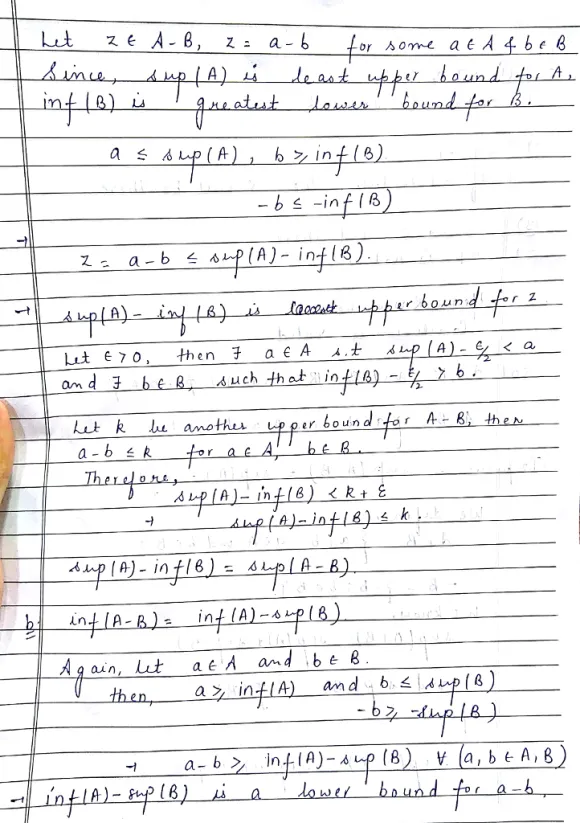 Let z ∈ A-B, z = a-b for some a ∈ A & b ∈ B
Since, sup(A) is least upper bound for A,
inf(B) is greatest lower bound for B.
a ≤ sup(A), b ≥ inf(B)
-b ≤ -inf(B)
→
z = a-b ≤ sup(A)-inf(B).
→ sup(A)-inf(B) is upper bound for z
Let ε>0, then ∃ a ∈ A s.t sup(A)-ε/2 < a
and ∃ b ∈ B, such that inf(B) - ε/2 > b.
Let k be another upper bound for A-B, then
a-b ≤ k for a ∈ A, b ∈ B.
Therefore,
sup(A)-inf(B) < k+ ε
→ sup(A)-inf(B) ≤ k.
sup(A)-inf(B) = sup(A-B).
b inf(A-B) = inf(A)-sup(B)
Again, let a ∈ A and b ∈ B.
then, a ≥ inf(A) and b ≤ sup(B)
-b ≥ -sup(B)
→ a-b ≥ inf(A)-sup(B) ∀ (a,b ∈ A,B)
→ inf(A)-sup(B) is a lower bound for a-b.